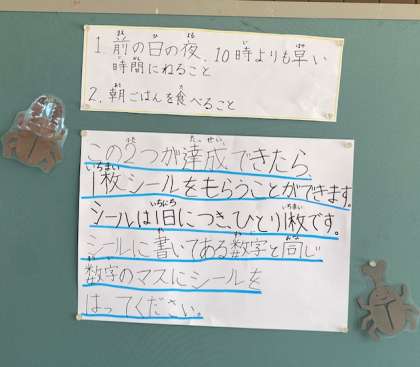 1. 前の日の夜、10時よりも早い
時間にねること
2. 朝ごはんを食べること
この2つが達成できたら、
1枚シールをもらうことができます。
シールは1日につき、ひとり1枚です。
シールに書いてある数字と同じ
数字のマスにシールを
はってください。